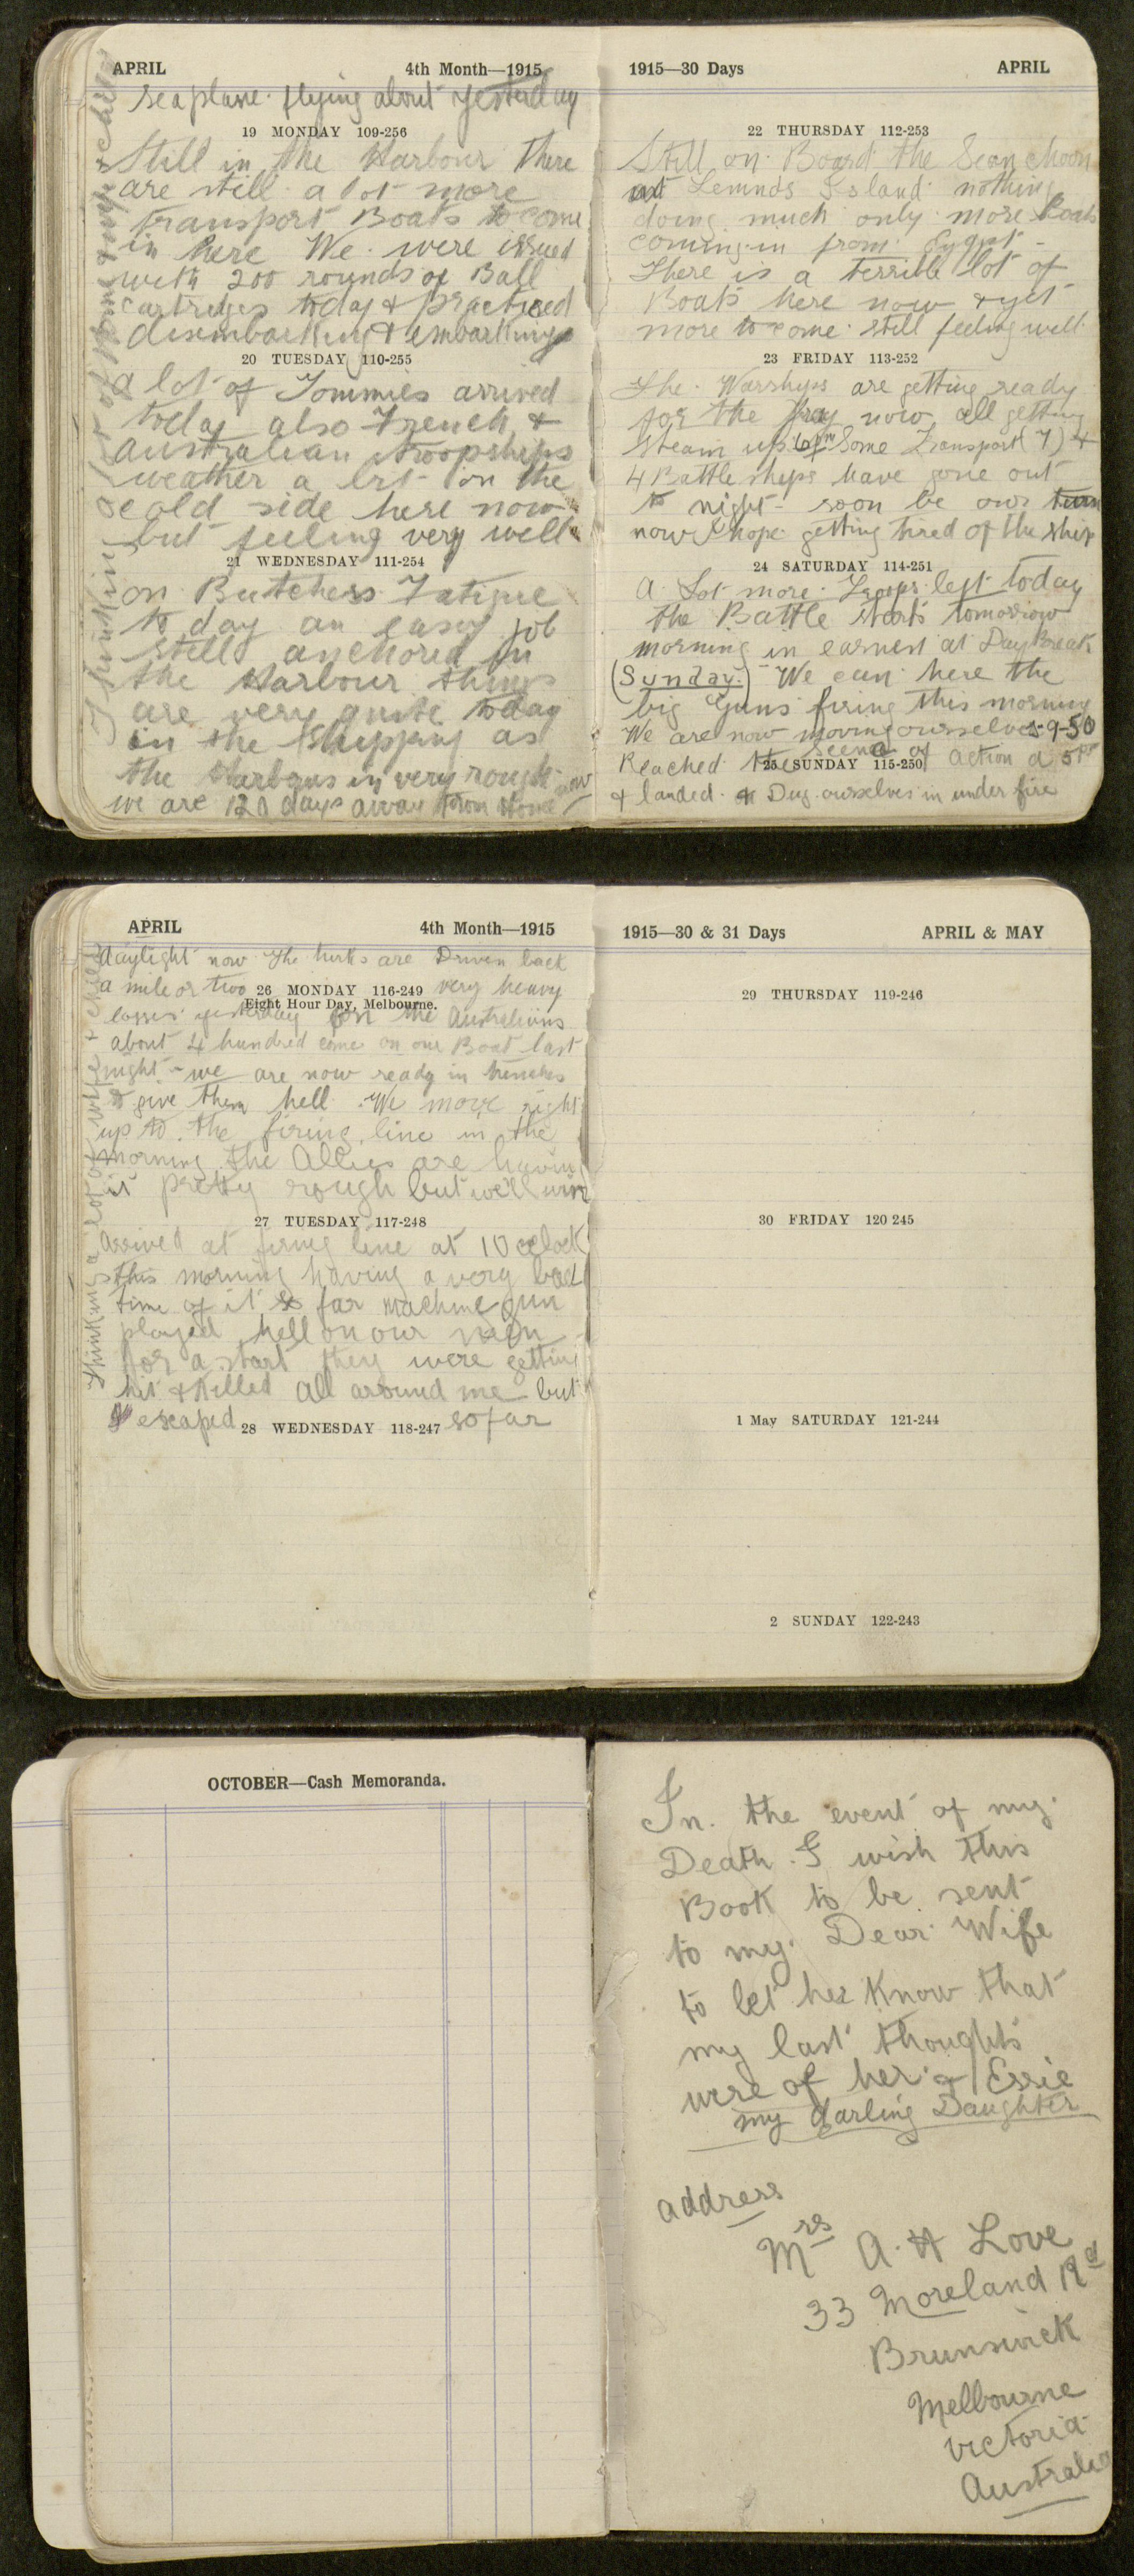 APRIL 4th Month—1915
seaplane flying about yesterday
19 MONDAY 109-256
Still in the Harbour There
are still a lot more
transport Boats to come
in here We were issued
with 200 rounds of Ball
cartridges today & practised
disembarking & embarking
20 TUESDAY 110-255
a lot of Tommies arrived
today also French &
Australian troopships
weather a bit on the
cold side here now
but feeling very well
21 WEDNESDAY 111-254
on Butchers Fatigue
to day an easy job
still anchored in
the Harbour things
are very quite today
in the Shipping as
the Harbour is very rough
we are 120 days away from Home now
Thinking a lot of home
1915—30 Days APRIL
22 THURSDAY 112-253
Still on Board the Sean Choon
at Lemnos Island nothing
doing much only more Boats
coming in from Egypt
There is a terrible lot of
Boats here now & yet
more to come still feeling well
23 FRIDAY 113-252
The Warships are getting ready
for the fray now all getting
steam up Some Transport (7) &
4 Battleships have gone out
to night - soon be our turn
now I hope getting tired of the ship
24 SATURDAY 114-251
A Lot more Troops left today
the Battle starts tomorrow
morning in earnest at DayBreak
(Sunday.) We can here the
big Guns firing this morning
We are now moving ourselves 9-50
Reached the scene of action at 5 PM
25 SUNDAY 115-250
& landed & Dug ourselves in under fire
APRIL 4th Month—1915
daylight now The turks are Driven back
a mile or two very heavy
26 MONDAY 116-249
Eight Hour Day, Melbourne.
losses yesterday for the Australians
about 4 hundred come on our Boat last
night - we are now ready in trenches
to give them hell. We move right
up to the firing line in the
morning the Allies are having
it pretty rough but we'll win
27 TUESDAY 117-248
arrived at firing line at 10 oclock
this morning having a very bad
time of it so far machine gun
played hell on our men
for a start they were getting
hit & killed all around me but
I escaped so far
28 WEDNESDAY 118-247
Thinking a lot of wife & child
1915—30 & 31 Days APRIL & MAY
29 THURSDAY 119-246
30 FRIDAY 120 245
1 May SATURDAY 121-244
2 SUNDAY 122-243
OCTOBER—Cash Memoranda.
In the event of my
Death I wish this
Book to be sent
to my Dear Wife
to let her Know that
my last thoughts
were of her & Essie
my darling Daughter
address
Mrs A. H Love
33 Moreland Rd
Brunswick
Melbourne
Victoria
Australia